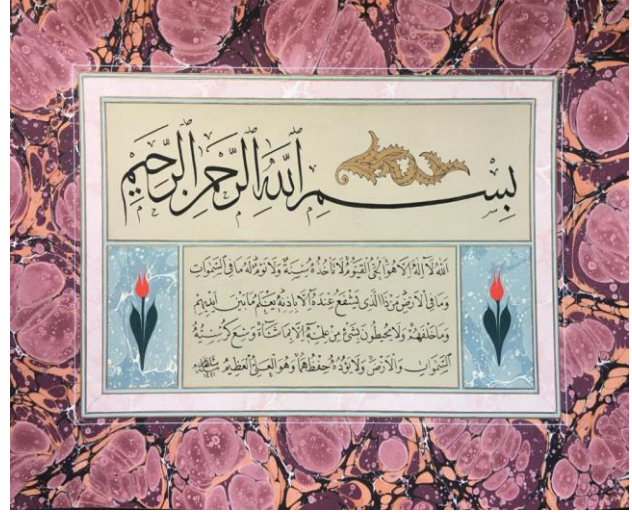 بِسْمِ اللّٰهِ الرَّحْمٰنِ الرَّحِيْمِ
اَللّٰهُ لَٓا اِلٰهَ اِلَّا هُوَ الْحَيُّ الْقَيُّومُ لَا تَأْخُذُهُ سِنَةٌ وَلَا نَوْمٌ لَهُ مَا فِي السَّمٰوَاتِ
وَمَا فِي الْاَرْضِ مَنْ ذَا الَّذِي يَشْفَعُ عِنْدَهُ اِلَّا بِاِذْنِهِ يَعْلَمُ مَا بَيْنَ اَيْدِيهِمْ
وَمَا خَلْفَهُمْ وَلَا يُحِيطُونَ بِشَيْءٍ مِنْ عِلْمِهِ اِلَّا بِمَا شَٓاءَ وَسِعَ كُرْسِيُّهُ
السَّمٰوَاتِ وَالْاَرْضَ وَلَا يَؤُدُهُ حِفْظُهُمَا وَهُوَ الْعَلِيُّ الْعَظِيمُ